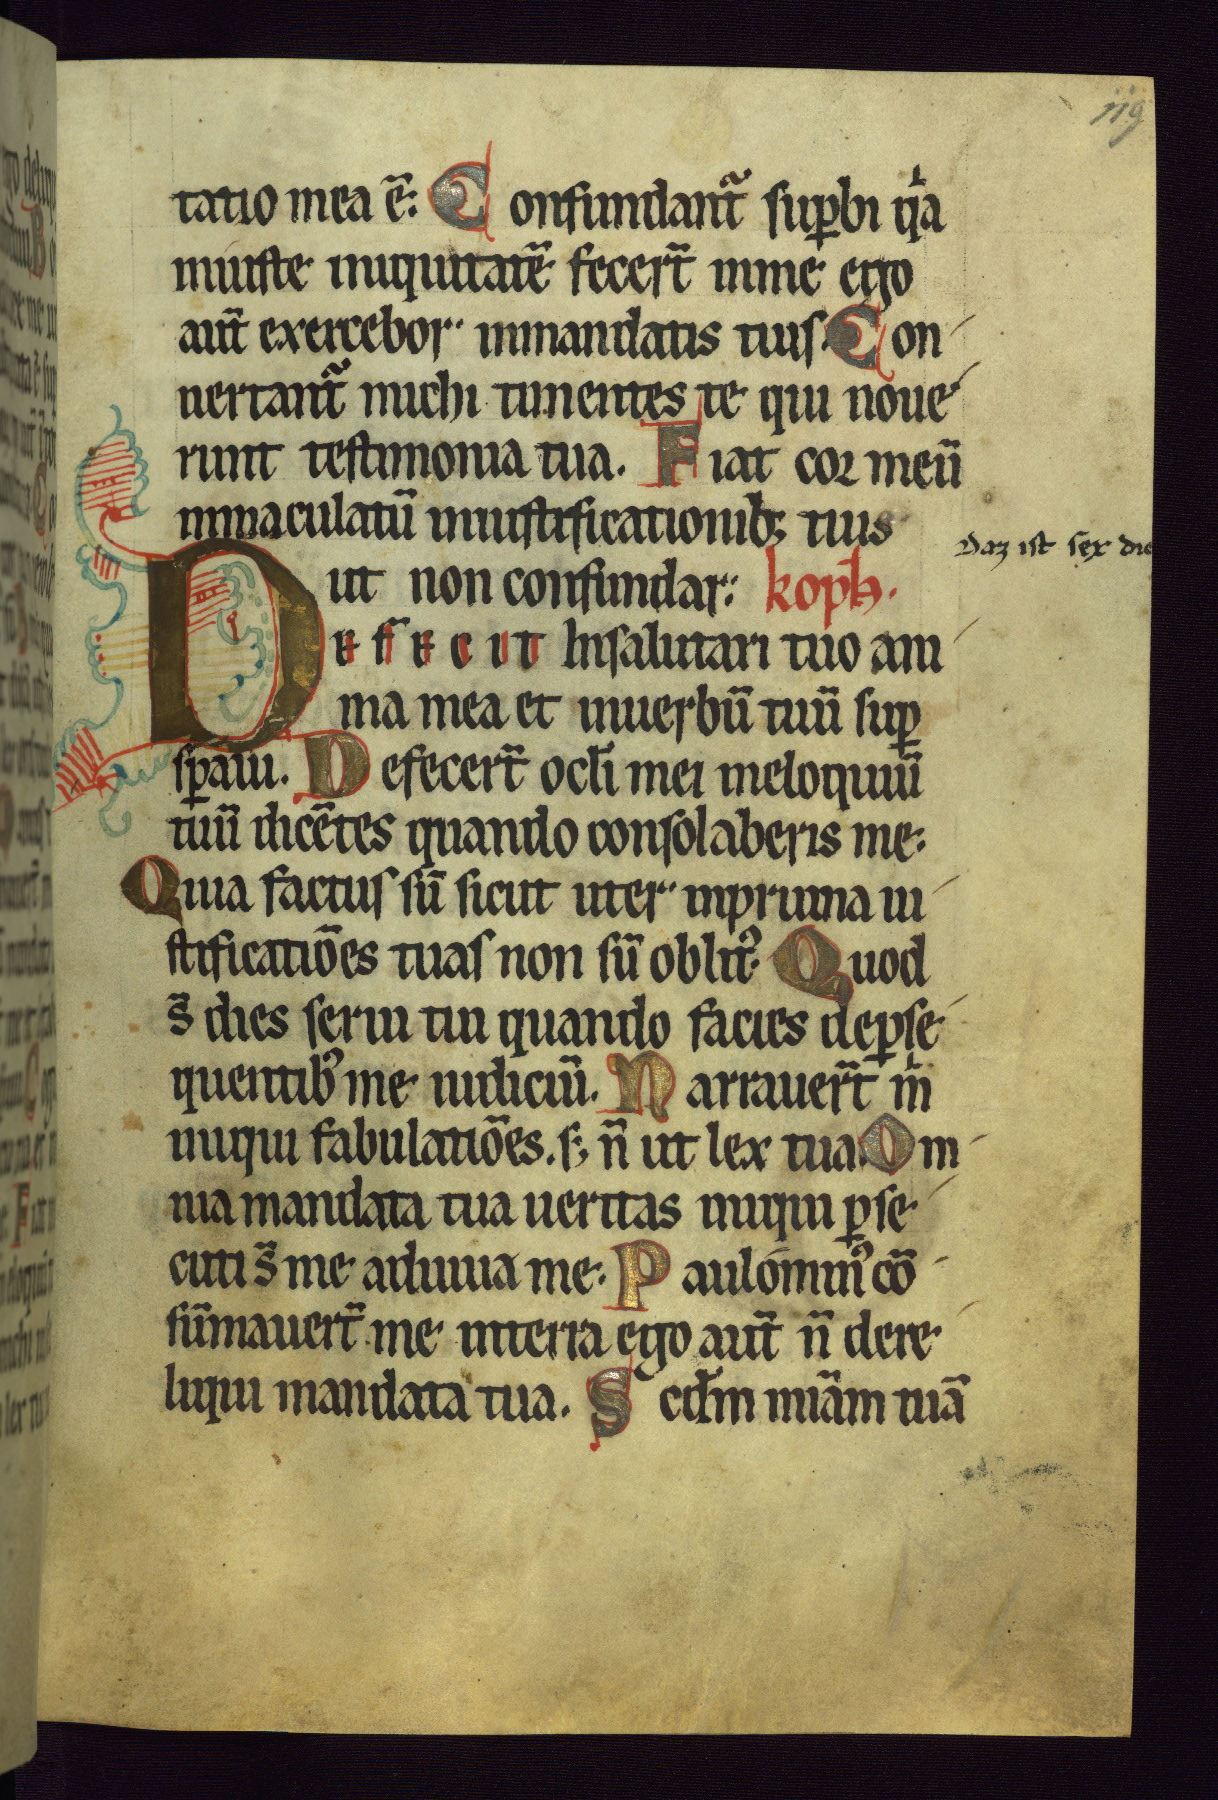 119
tatio mea ē. Confundant᷑ suꝑbi qͥa
iniuste iniquitatē fecer̄t inme ego
aūt exercebor inmandatis tuis. Con
uertant᷑ michi timentes te qui noue
runt testimonia tua. Fiat cor meū
inmaculatū iniustificationib; tuis
Daz ist sex die
ut non confundar. koph.
DEFECIT Insalutari tuo ani
ma mea et inuerbū tuū suꝑ
sꝑaui. Defecer̄t ocl̄i mei ineloquiū
tuū dicētes quando consolaberis me.
Quia factus sū sicut uter inpruina iu
stificatiōes tuas non sū oblitꝰ. Quod
s̄ dies serui tui quando facies deꝑse
quentibꝰ me iudiciū. Narrauer̄t mͥ
iniqui fabulatiōes. s; n̄ ut lex tua. Om
nia mandata tua ueritas iniqui ꝑse
cuti s̄ me adiuua me. Paulominꝰ cō
sūmauer̄t me interra ego aūt n̄ dere
liqui mandata tua. Scd̄m miām tuā